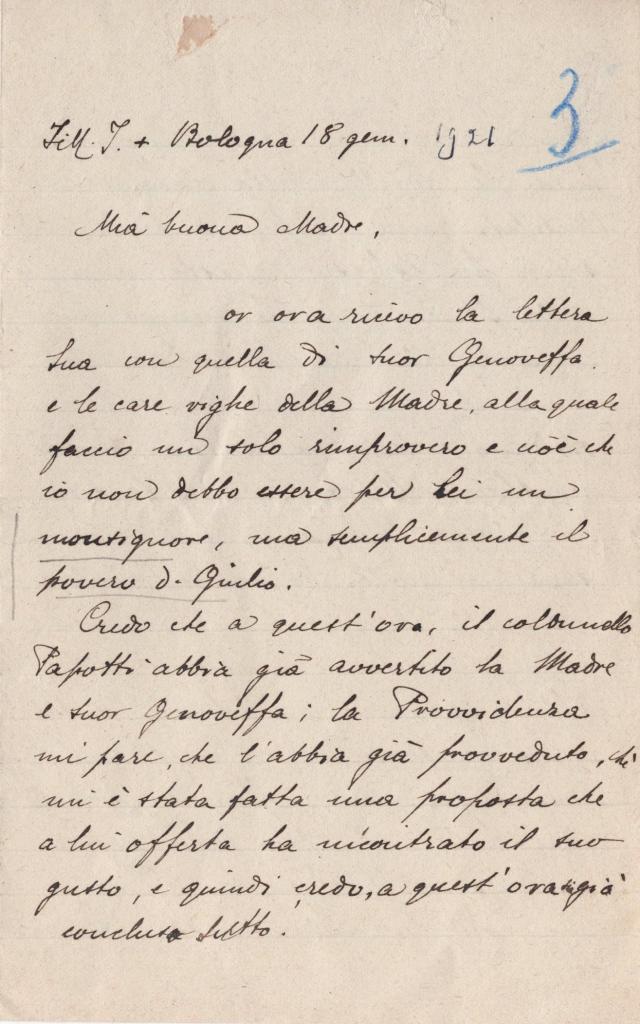 3
+ Bologna 18 gen. 1921
Mia buona Madre,
or ora ricevo la lettera
sua con quella di suor Genoveffa
e le care righe della Madre, alla quale
faccio un solo rimprovero e cioè che
io non debbo essere per lei un
monsignore, ma semplicemente il
povero d. Giulio.
Credo che a quest'ora, il colonnello
Papotti abbia già avvertito la Madre
e suor Genoveffa; la Provvidenza
mi pare, che l'abbia già provveduto, chè
mi è stata fatta una proposta che
a lui offerta ha incontrato il suo
gusto, e quindi credo, a quest'ora già
concluso tutto.